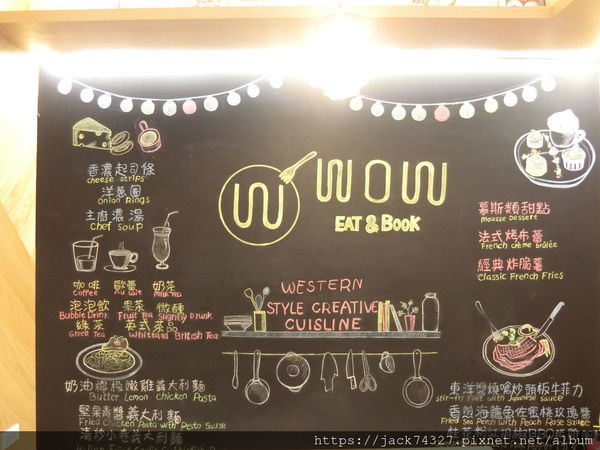 香濃起司條
cheese strips
洋蔥圈
onion Rings
主廚濃湯
chef soup
咖啡 歐蕾 奶茶
coffee Au Lait Milk Tea
泡泡飲 果茶 微醺
Bubble Drink Fruit Tea Slightly Drunk
綠茶 英式茶品
Green Tea Whittard British Tea
奶油檸檬嫩雞義大利麵
Butter Lemon chicken Pasta
堅果青醬義大利麵
Fried Chicken Pasta with Pesto Sause
清炒小卷義大利麵
W WOW
EAT & BOOK
WESTERN
STYLE CREATIVE
CUISLINE
慕斯類甜點
Mousse Dessert
法式烤布蕾
French crème Brûlée
經典炸脆薯
Classic French Fries
東洋醬燒嗆炒頭板牛菲力
stir-fry filet with Japanese sauce
香煎海鱺魚佐蜜桃玫瑰醬
Fried Sea Perch with Peach Rose Sauce
https://jack74327.pixnet.net/album